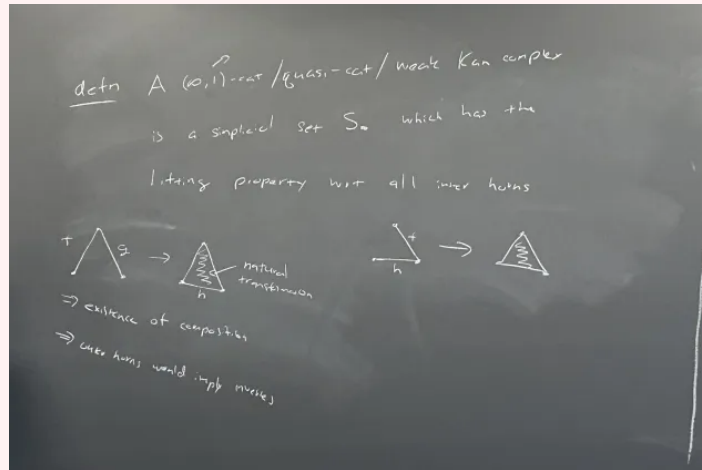 defn A (∞,1)-cat/quasi-cat/weak Kan complex
is a simplicial set S• which has the
lifting property wrt all inner horns
f g → h natural
transformation
h f →
⇒ existence of composition
⇒ outer horns would imply inverses